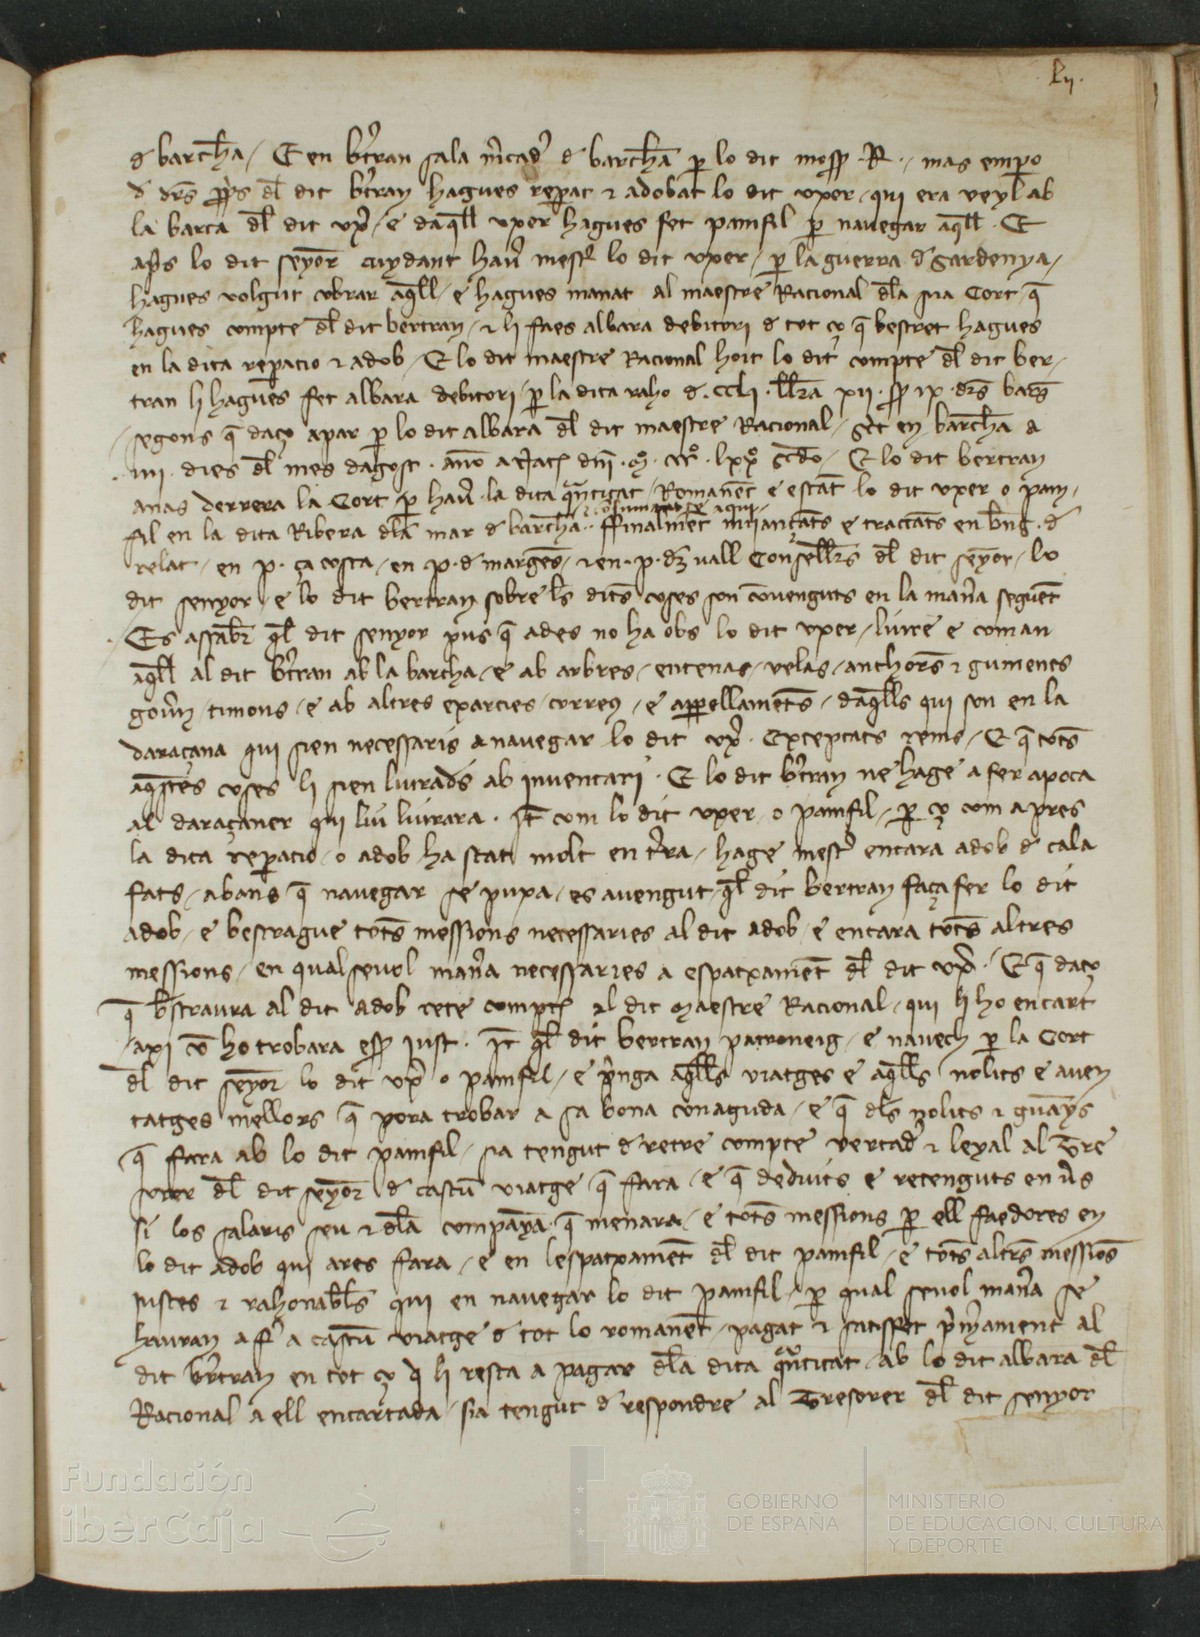 lij.
d barchª / E en bt̃ran sala m̃cad̃ d barchª p̱ lo dit moss̃ R. / mas emp̱o
d drs p̱p̱s dl̃ dit bt̃ran hagues rep̱at & adobat lo dit uxer / qui era veyl ab
la barca dl̃ dit ux̃ / e daq̃ll uxer hagues fet pamfil p̱ nauegar aq̃ll . E
ap̃s lo dit senyor cuydant hau̾ mest̾ lo dit uxer / p̱ la guerra d Sardenya /
hagues volgut cobrar aq̃ll / e hagues manat al maestre Racional dla sua Cort q̃
hagues compte dl̃ dit bertran / & li faes albara debitori d tot ço q̃ bestret hagues
en la dita rep̱acio & adob / E lo dit maestre Racional hoit lo dit compte dl̃ dit ber /
tran li hagues fet albara debitori / p̱ la dita raho d . ccli . ll̃ra xii . ss̃ ix . drs barchs
/ segons q̃ daço apar p̱ lo dit albara dl̃ dit maestre Racional / sc̃t en barchª a
. iiii . dies dl̃ mes dagost . año a nat̃ dñi . mº . cccº . lxxº scdo / E lo dit bertran
anas derrera la Cort p̱ hau̾ la dita q̃ntitat / Romanẽt e estãt lo dit uxer o pam /
fil en la dita Ribera dla mar d barchª . ffinalmẽt mijançãts e tractãts en bñg . d
relat / en p . ça costa / en p . d margẽs / & en . p . dz vall Consellr̃s dl̃ dit senyor / lo
dit senyor / e lo dit bertran sobre ls dits coses son cõuenguts en la mañra seguẽt
/ Es assab̃r q̃l dit senyor pus q̃ ades no ha obs lo dit uxer / liure e coman
aq̃ll al dit bt̃ran ab la barcha / e ab arbres / entenas / velas / anchors & gumenes
gou̾n / timons / e ab altres exarcies / correus / e app̱ellamẽts / daq̃lls qui son en la
daraçana qui sien necessaris a nauegar lo dit ux̃ . Exceptats rems / E q̃ tots
aq̃stes coses li sien liurades ab inuentari . E lo dit bt̃ran ne hage a fer apoca
al daraçaner qui liu liurara . It̃ com lo dit uxer / o pamfil / p̱ ço com apres
la dita rep̱acio / o adob ha stat molt en t̃ra / hage mest̾ encara adob d cala
fats / abans q̃ nauegar se puxa / es auengut / q̃l dit bertran faça fer lo dit
adob / e bestrague tots messions necessaries al dit adob / e encara tots altres
messions / en qualseuol mañra necessaries a espatxamẽt dl̃ dit ux̃ . E q̃ daço
q̃ bestraura al dit adob rete compte al dit Maestre Racional / qui li ho encart
/ axi cõ ho trobara ess̃ just . It̃ q̃l dit bertran patroneig / e nauech p̱ la Cort
dl̃ dit senyor lo dit ux̃ o pamfil / e pr̃nga aq̃lls viatges e aq̃lls nolits e auen
tatges mellors q̃ pora trobar a sa bona conaguda / e q̃ dls nolits & guãys
q̃ fara ab lo dit pamfil / sia tengut d retre compte vertad̃ & leyal al Tre
surer dl̃ dit senyor d cascũ viatge q̃ fara / e q̃ deduits e retenguts en v̾s
si los salaris seu & dla companya q̃ menara / e tots messions p̱ ell faedores en
lo dit adob qui ares fara / e en lespatxamẽt dl̃ dit pamfil / e tots altrs messions
justes & rahonabls qui en nauegar lo dit pamfil / p̱ qual seuol mañra se
hauran a fr̃ a cascũ viatge d tot lo romanẽt / pagat & satisfet pr̃meramẽt al
dit bt̃ran en tot ço q̃ li resta a pagar dla dita q̃ntitat / ab lo dit albara dl̃
Racional a ell encartada / sia tengut d respondre al Tresorer dl̃ dit senyor
Fundación
iberCaja
GOBIERNO
DE ESPAÑA
MINISTERIO
DE EDUCACIÓN, CULTURA
Y DEPORTE